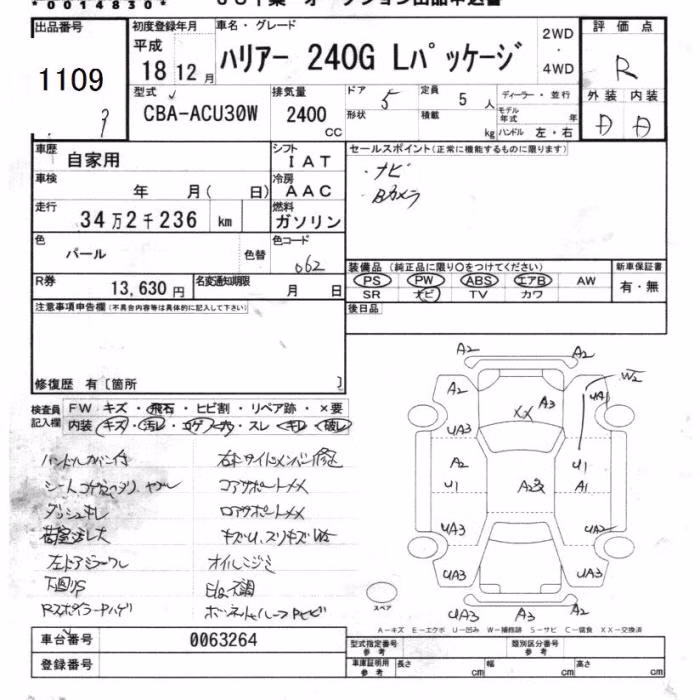 *0014830*
出品番号
1109
初度登録年月
平成
18 12 月
車名・グレード
ハリアー 240G Lパッケージ
2WD
・
4WD
評価点
R
外装 内装
D D
型式
CBA-ACU30W
排気量
2400
CC
ドア
5
形状
定員
5 人
積載
kg
ディーラー・並行
モデル年式 年
ハンドル 左・右
車歴
自家用
シフト
IAT
車検
年 月( 日)
冷房
AAC
走行
34万2千236 km
燃料
ガソリン
色
パール
色替
色コード
062
R券
13,630 円
名変通知期限
月 日
セールスポイント(正常に機能するものに限ります)
・ナビ
・Bカメラ
装備品 (純正品に限り○をつけてください)
PS PW ABS エアB AW
SR ナビ TV カワ
新車保証書
有・無
後日品
注意事項申告欄(不具合内容等は具体的に記入して下さい)
修復歴 有〔箇所 〕
検査員記入欄
FW キズ・飛石・ヒビ割・リペア跡・×要
内装 キズ・汚レ・コゲ／穴・スレ・キレ・破レ
ハンドルカバー付
ダッシュキレ
左ドアミラーワレ
下回りS
Rスポイラー Pハゲ
右サイドメンバー修正
コアサポートXX
ロアサポートXX
オイルニジミ
A2
A2
W2
A2
A3
UA1
XX
UA3
A2
U1
U1
A1
UA3
UA2
UA3
UA3
UA3
A3
A2
スペア
A－キズ E－エクボ U－凹み W－補修跡 S－サビ C－腐食 XX－交換済
車台番号
0063264
登録番号
型式指定番号
参考
類別区分番号
参考
車庫証明用
参考
長さ cm
幅 cm
高さ cm